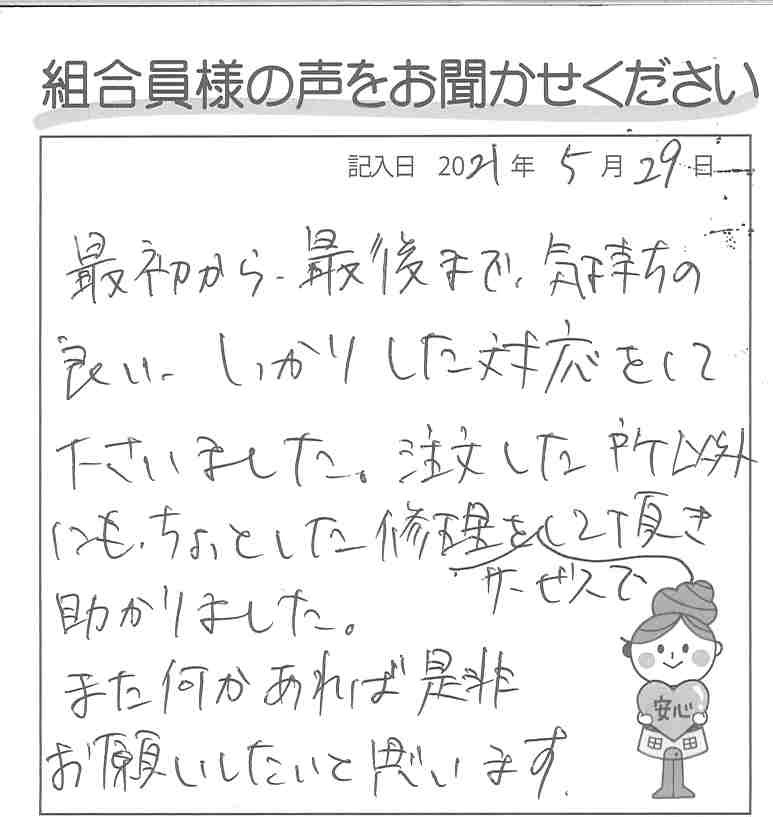 組合員様の声をお聞かせください
記入日 2021年 5月29日
最初から最後まで、気持ちの
良い、しっかりした対応をして
下さいました。注文した所以外
にも、ちょっとした修理をして頂き
サービスで
助かりました。
また何かあれば是非
お願いしたいと思います.
安心